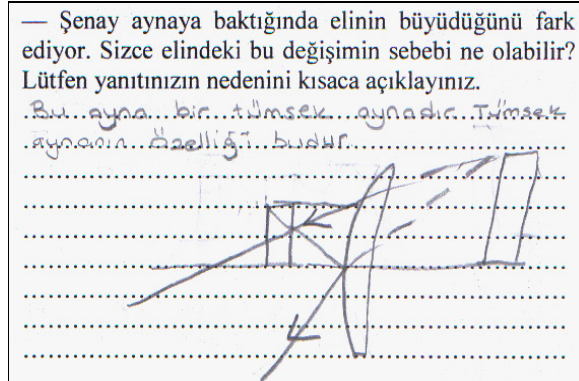 — Şenay aynaya baktığında elinin büyüdüğünü fark
ediyor. Sizce elindeki bu değişimin sebebi ne olabilir?
Lütfen yanıtınızın nedenini kısaca açıklayınız.
Bu ayna bir tümsek aynadır. Tümsek
aynanın özelliği budur.